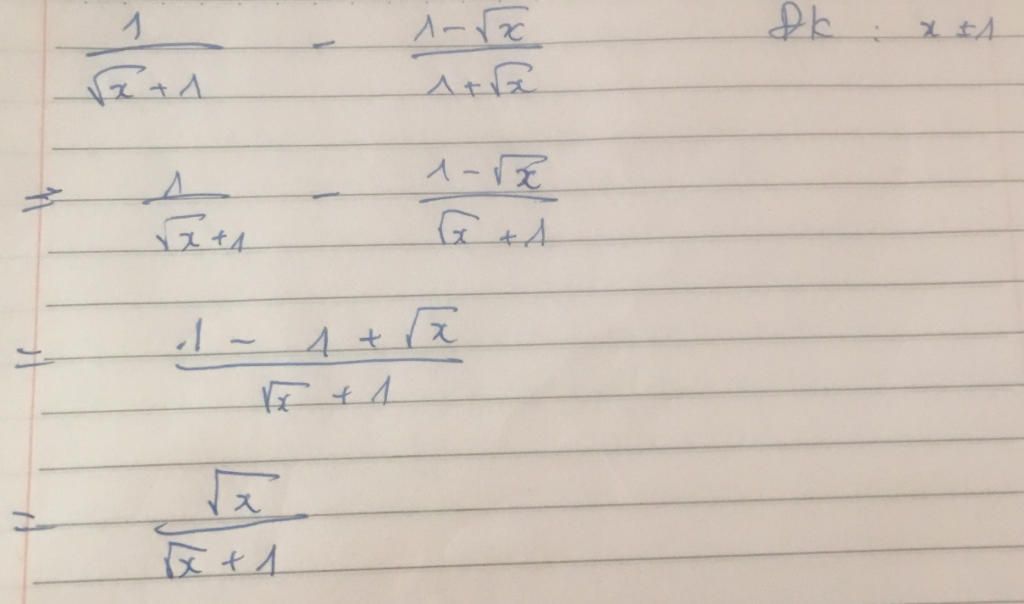 1/(√x + 1) - (1 - √x)/(1 + √x) ĐK : x ≠ 1
=> 1/(√x + 1) - (1 - √x)/(√x + 1)
= (1 - 1 + √x)/(√x + 1)
= √x/(√x + 1)